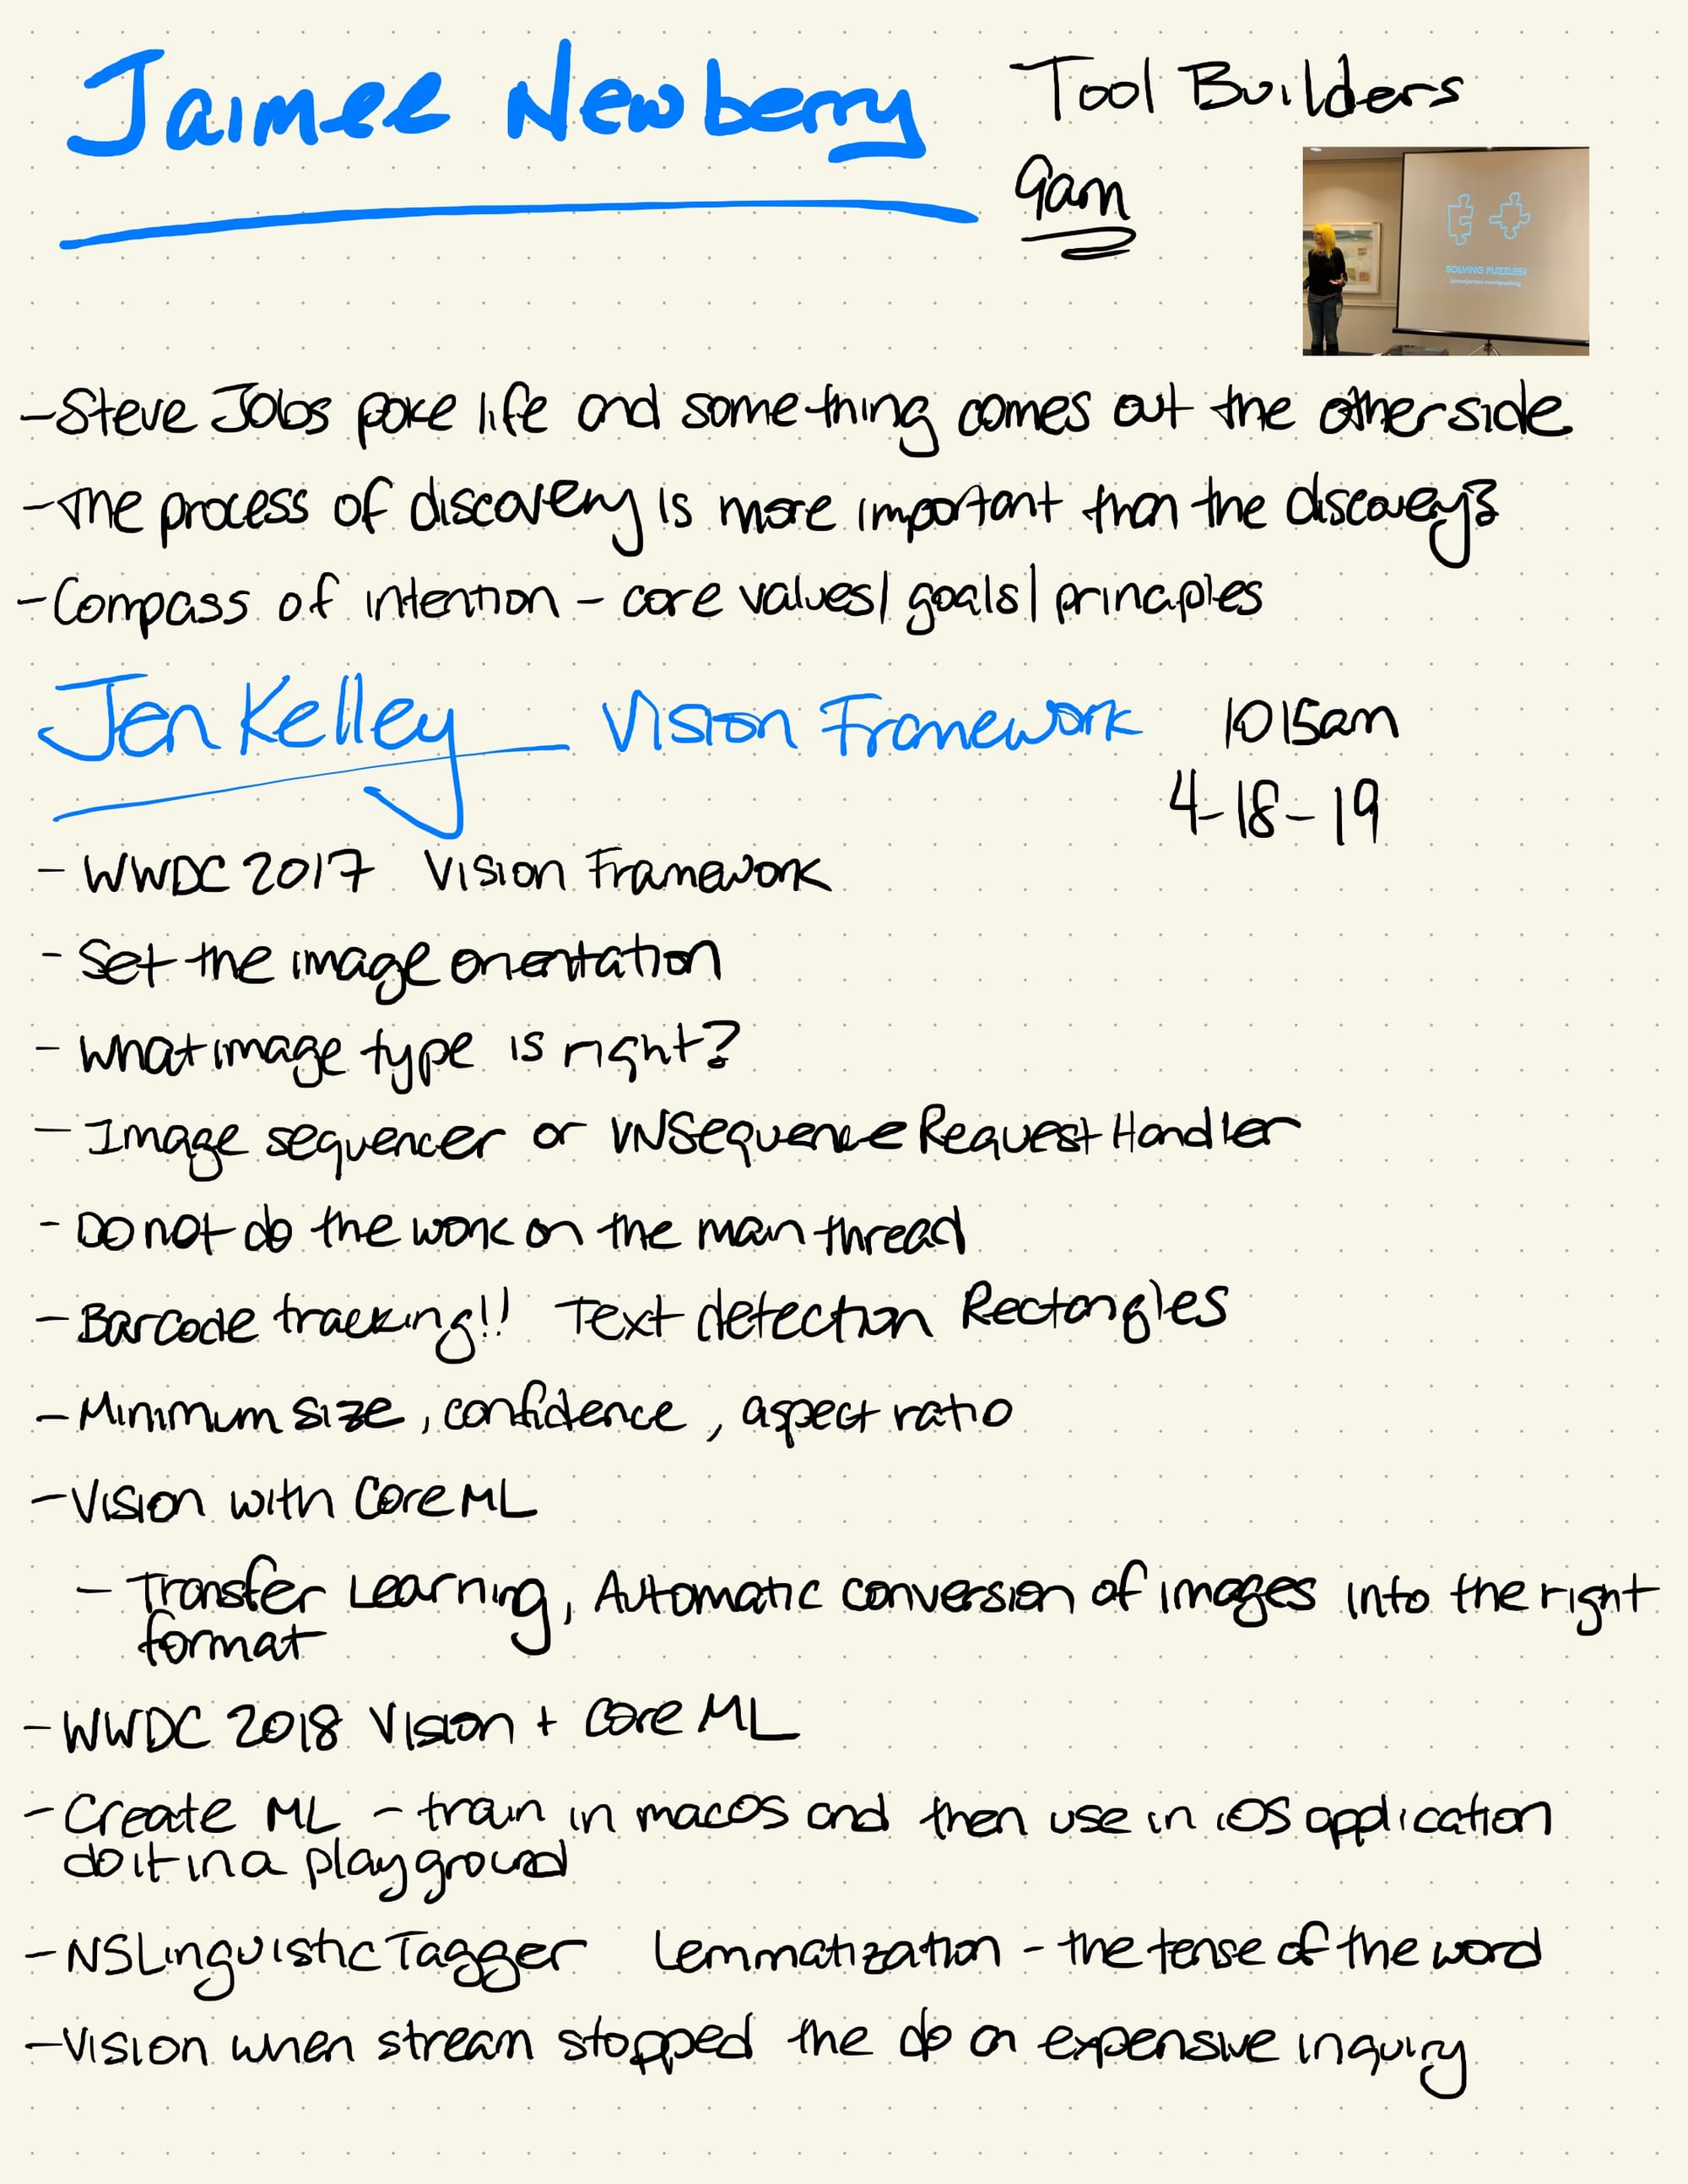 Jaimee Newberry
Tool Builders
9am
SOLVING PUZZLES!
- Steve Jobs poke life and something comes out the other side
- The process of discovery is more important than the discovery?
- Compass of intention - core values/ goals/ principles
Jen Kelley - Vision Framework 1015am
4-18-19
- WWDC 2017 Vision Framework
- Set the image orientation
- what image type is right?
- Image sequencer or VNSequenceRequestHandler
- Do not do the work on the main thread
- Barcode tracking!! Text detection Rectangles
- Minimum size, confidence, aspect ratio
- Vision with CoreML
- Transfer Learning, Automatic conversion of images into the right
format
- WWDC 2018 Vision + Core ML
- Create ML - train in macOS and then use in iOS application
do it in a playground
- NSLinguisticTagger Lemmatization - the tense of the word
- Vision when stream stopped the do an expensive inquiry